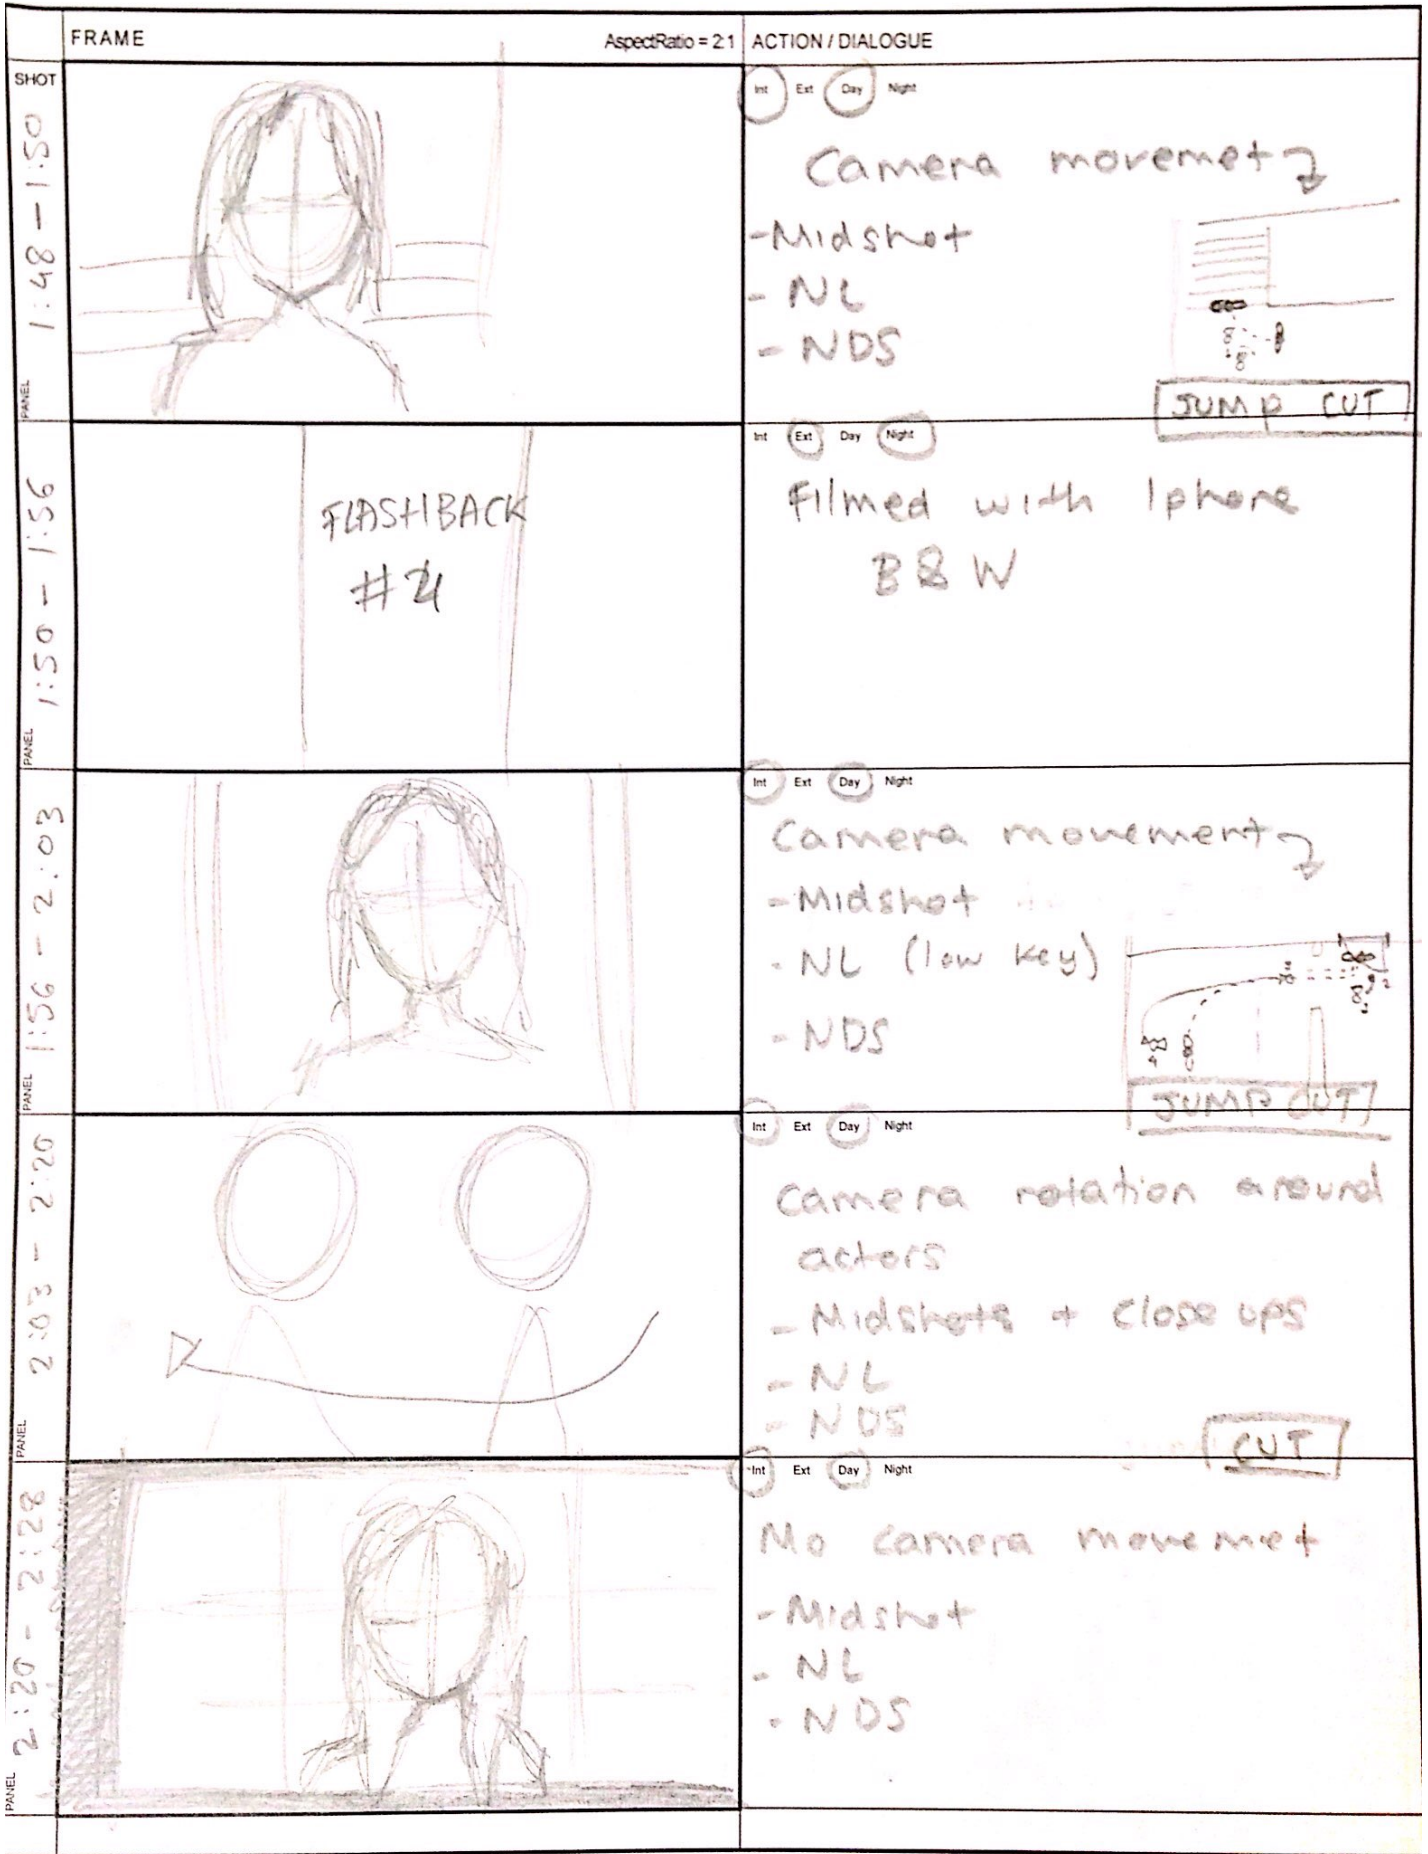 FRAME AspectRatio = 2:1 ACTION / DIALOGUE
SHOT
1:48 - 1:50
PANEL
Int Ext Day Night
Camera movemet
- Midshot
- NL
- NDS
JUMP CUT
1:50 - 1:56
PANEL
FLASHBACK
Int Ext Day Night
Filmed with Iphone
B & W
1:56 - 2:03
PANEL
Int Ext Day Night
Camera movement
- Midshot
- NL (low key)
- NDS
JUMP CUT
2:03 - 2:20
PANEL
Int Ext Day Night
Camera rotation around
actors
- Midshots + Close ups
- NL
- NDS
CUT
2:20 - 2:28
PANEL
Int Ext Day Night
No camera movemet
- Midshot
- NL
- NDS